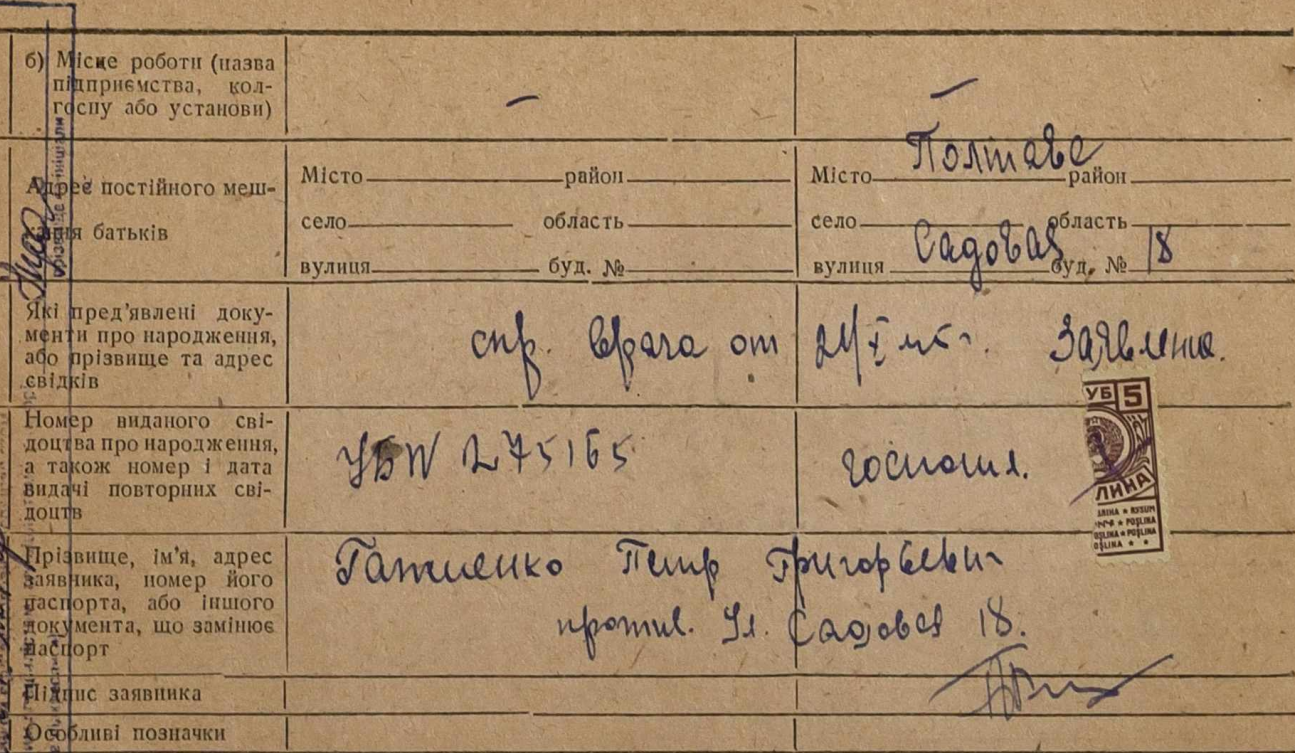 б) Місце роботи (назва
підприємства, кол-
госпу або установи)
— —
Адреє постійного меш-
кання батьків
Місто район
село область
вулиця буд. №
Місто Полтава район
село область
вулиця Садовая буд. № 18
Які пред'явлені доку-
менти про народження,
або прізвище та адрес
свідків
спр. врача от 24/I Заявлено.
Номер виданого сві-
доцтва про народження,
а також номер і дата
видачі повторних сві-
доцтв
УБ № 275165
госпошл.
УБ 5
ЛИНА
Прізвище, ім'я, адрес
заявника, номер його
паспорта, або іншого
документа, що замінює
паспорт
Петр Григорьевич
прожив. Ул. Садовая 18.
Підпис заявника
Особливі позначки